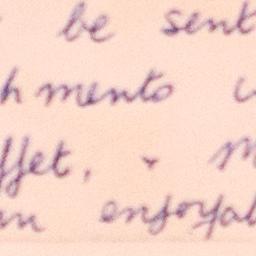 be sent
h ments
ffet,
enjoyab